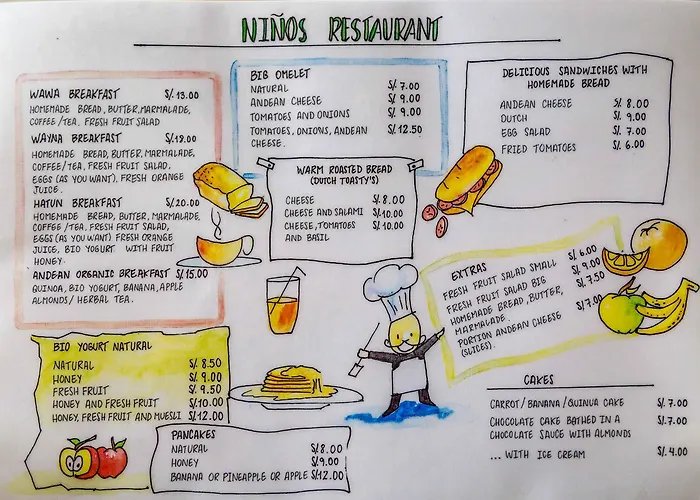 NIÑOS RESTAURANT
WAWA BREAKFAST S/. 13.00
HOMEMADE BREAD, BUTTER, MARMALADE,
COFFEE/TEA, FRESH FRUIT SALAD
WAYNA BREAKFAST S/.18.00
HOMEMADE BREAD, BUTTER, MARMALADE,
COFFEE/TEA, FRESH FRUIT SALAD,
EGGS (AS YOU WANT), FRESH ORANGE
JUICE.
HATUN BREAKFAST S/.20.00
HOMEMADE BREAD, BUTTER, MARMALADE,
COFFEE/TEA, FRESH FRUIT SALAD,
EGGS (AS YOU WANT) FRESH ORANGE
JUICE, BIO YOGURT WITH FRUIT
HONEY.
ANDEAN ORGANIC BREAKFAST S/.15.00
QUINUA, BIO YOGURT, BANANA, APPLE
ALMONDS/ HERBAL TEA.
BIO YOGURT NATURAL
NATURAL S/. 8.50
HONEY S/. 9.00
FRESH FRUIT S/. 9.50
HONEY AND FRESH FRUIT S/.10.00
HONEY, FRESH FRUIT AND MUESLI S/.12.00
BIG OMELET
NATURAL S/. 7.00
ANDEAN CHEESE S/. 9.00
TOMATOES AND ONIONS S/. 9.00
TOMATOES, ONIONS, ANDEAN S/.12.50
CHEESE.
WARM ROASTED BREAD
(DUTCH TOASTY'S)
CHEESE S/.8.00
CHEESE AND SALAMI S/.10.00
CHEESE, TOMATOES S/.10.00
AND BASIL
PANCAKES
NATURAL S/.8.00
HONEY S/.9.00
BANANA OR PINEAPPLE OR APPLE S/.12.00
DELICIOUS SANDWICHES WITH
HOMEMADE BREAD
ANDEAN CHEESE S/. 8.00
DUTCH S/. 9.00
EGG SALAD S/. 7.00
FRIED TOMATOES S/. 6.00
EXTRAS
FRESH FRUIT SALAD SMALL S/. 6.00
FRESH FRUIT SALAD BIG S/. 9.00
HOMEMADE BREAD, BUTTER, S/. 7.50
MARMALADE.
PORTION ANDEAN CHEESE S/.7.00
(SLICES).
CAKES
CARROT/BANANA/QUINUA CAKE S/. 7.00
CHOCOLATE CAKE BATHED IN A S/.7.00
CHOCOLATE SAUCE WITH ALMONDS
... WITH ICE CREAM S/. 4.00